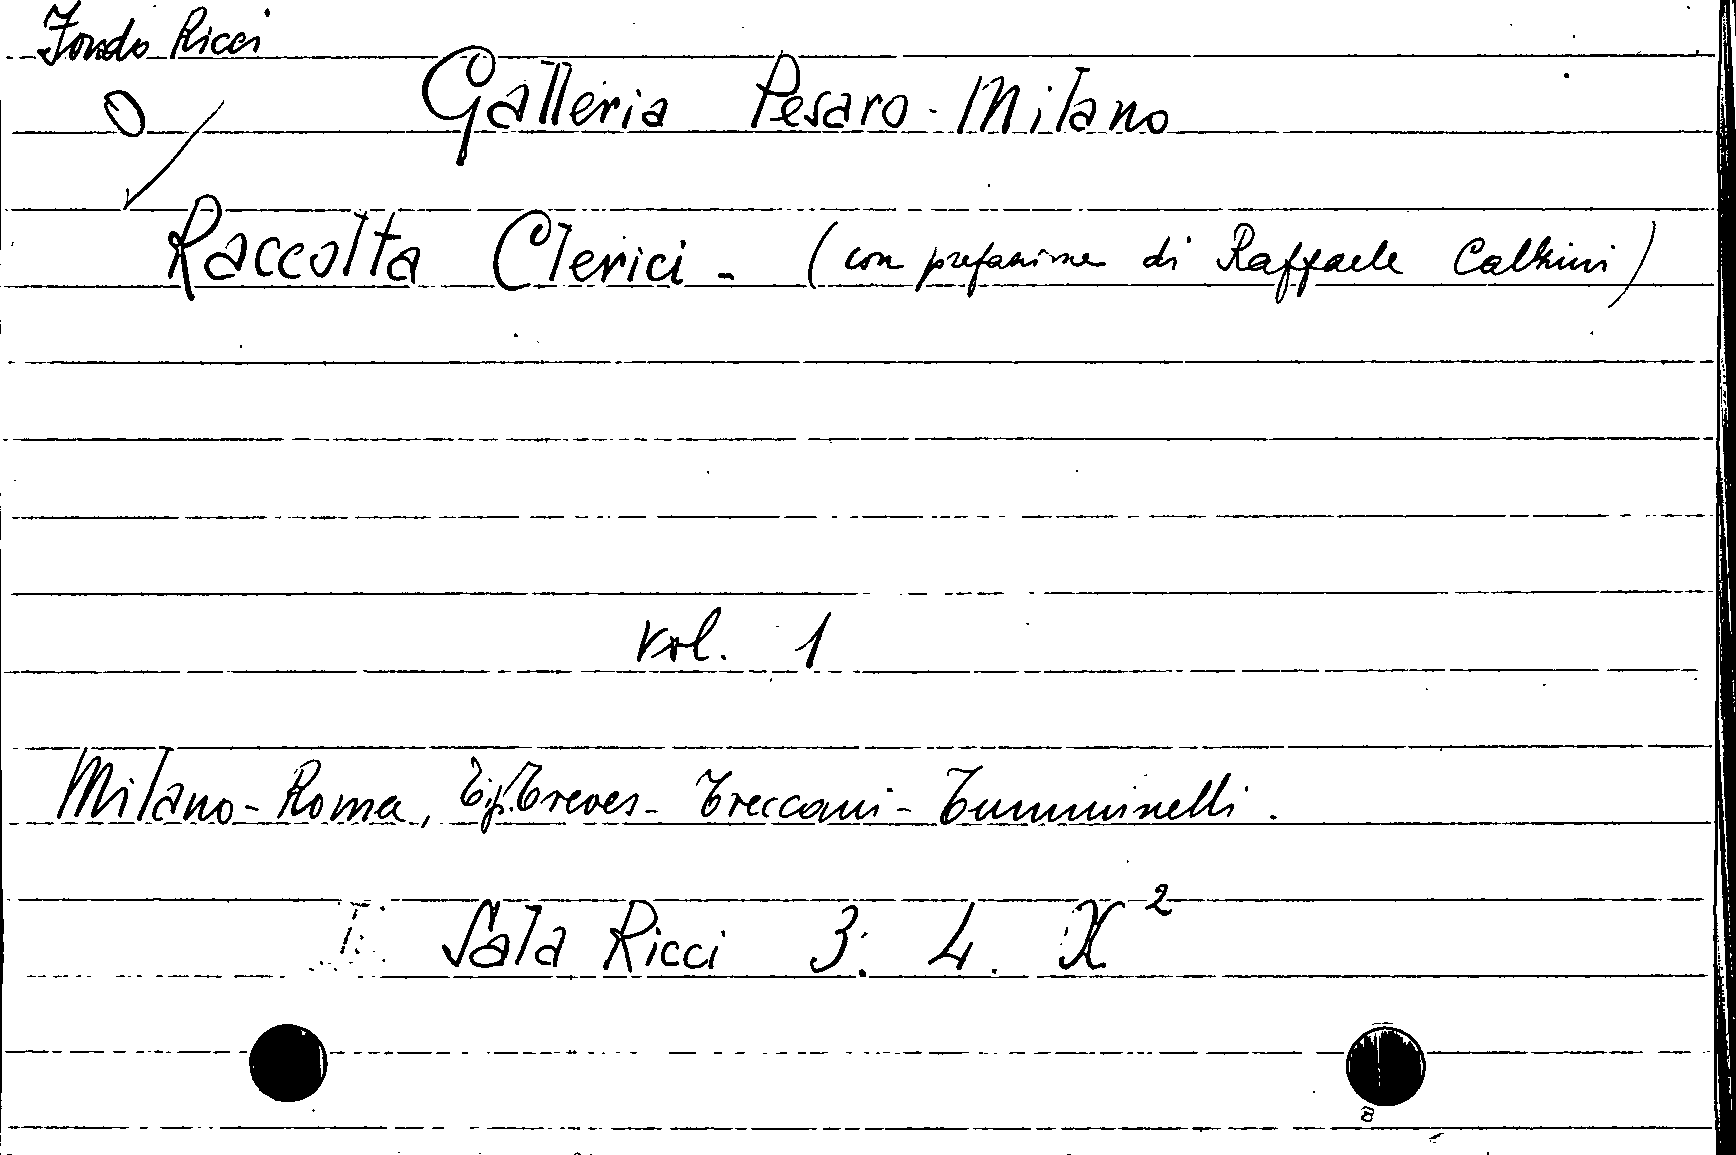 Fondo Ricci
Galleria Pesaro - Milano
Raccolta Clerici - (con prefazione di Raffaele Calzini)
vol. 1
Milano - Roma, Tip. Treves - Treccani - Tumminelli.
Sala Ricci 3. 4. X²